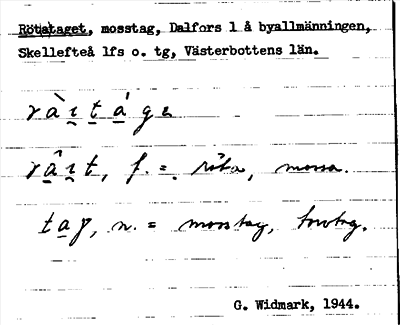 Rötataget, mosstag, Dalfors l å byallmänningen,
Skellefteå lfs o. tg, Västerbottens län.
f. = röta, mossa.
tag, n. = mosstag, torvtag.
G. Widmark, 1944.